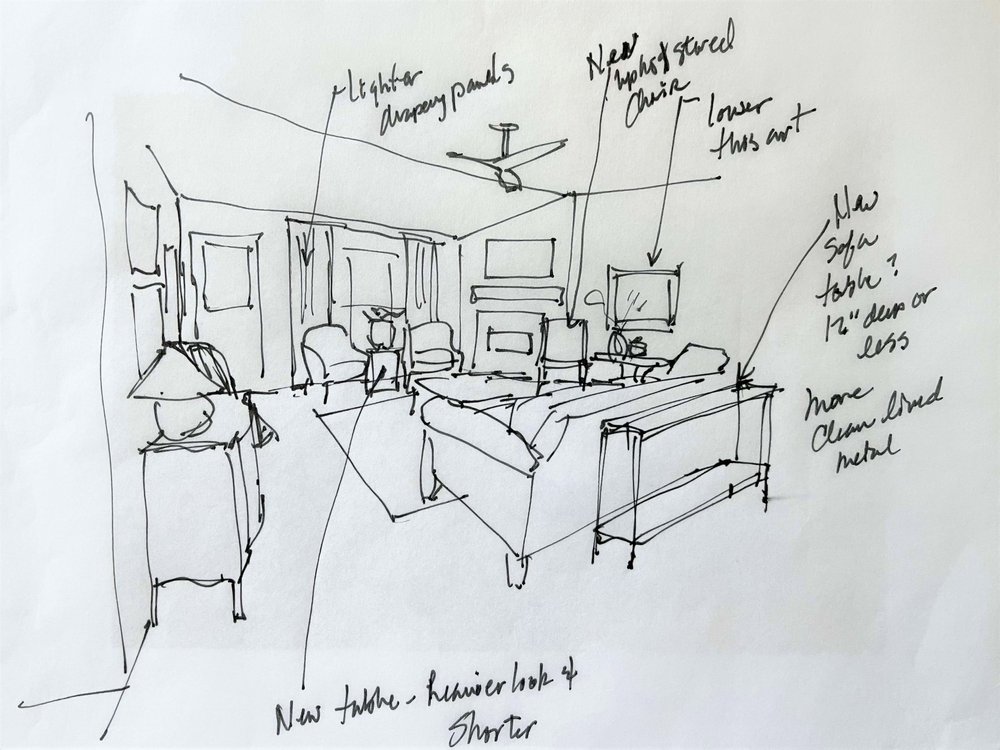 Lighter
drapery panels
New
upholstered
Chair
Lower
this art
New
Sofa
table?
12" deep or
less
more
Clean lined
metal
New table - heavier look &
Shorter